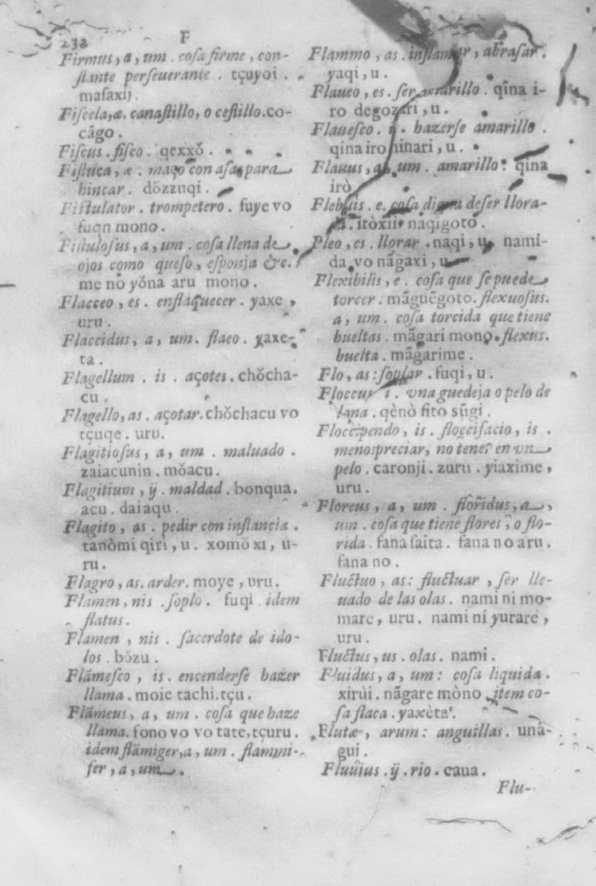 232
F
Firmus, a, um. cosa firme, con-
stante perseuerante. tçuyoi.
masaxij.
Fiscela, æ. canastillo, o cestillo. co-
cǎgo.
Fiscus. fisco. qexxǒ.
Fistuca, æ. maço con asas para
hincar. dǒzzuqi.
Fistulator. trompetero. fuye vo
fuqu mono.
Fistulosus, a, um. cosa llena de
ojos como queso, esponja &c.
me no yǒna aru mono.
Flacceo, es. enflaquecer. yaxe,
uru.
Flaccidus, a, um. flaco. yaxe-
ta.
Flagellum. is. açotes. chǒcha-
cu.
Flagello, as. açotar. chǒchacu vo
tçuqe. uru.
Flagitiosus, a, um. maluado.
zaiacunin. mǒacu.
Flagitium, ij. maldad. bonqua.
acu. daiaqu.
Flagito, as. pedir con instancia.
tanòmi qiri, u. xomǒ xi, u-
ru.
Flagro, as. arder. moye, uru.
Flamen, nis. soplo. fuqi idem
flatus.
Flamen, nis. sacerdote de ido-
los. bǒzu.
Flãmesco, is. encenderse hazer
llama. moie tachi. tçu.
Flãmeus, a, um. cosa que haze
llama. fono vo vo tate, tçuru.
idem flãmiger, a, um. flammi-
fer, a, um.
Flammo, as. inflamar, abrasar.
yaqi, u.
Flaueo, es. ser amarillo. qina i-
ro degozari, u.
Flauesco. is. hazerse amarillo.
qina iro ninari, u.
Flauus, a, um. amarillo: qina
irò
Flebilis, e. cosa digna de ser llora-
da. itòxii. naqigotò.
Fleo, es. llorar. naqi, u. nami-
da vo nãgaxi, u.
Flexibilis, e. cosa que se puede
torcer. mãguègoto. flexuosus.
a, um. cosa torcida que tiene
bueltas. mãgari mono. flexus.
buelta. mãgarime.
Flo, as: soplar. fuqi, u.
Floccus. i. vna guedeja o pelo de
lana. qènò fito sũgi.
Floccipendo, is. floccifacio, is.
menospreciar, no tener en vn
pelo. caronji. zuru. yiaxime,
uru.
Floreus, a, um. floridus, a,
um. cosa que tiene flores, o flo-
rida. fana saita. fana no aru.
fana no.
Fluctuo, as: fluctuar, ser lle-
uado de las olas. nami ni mo-
mare, uru. nami ni yurare,
uru.
Fluctus, us. olas. nami.
Fluidus, a, um: cosa liquida.
xirùi. nãgare mòno. item co-
sa flaca. yaxèta.
Flutæ, arum: anguillas. unà-
gui.
Fluuius. ij. rio. caua.
Flu-